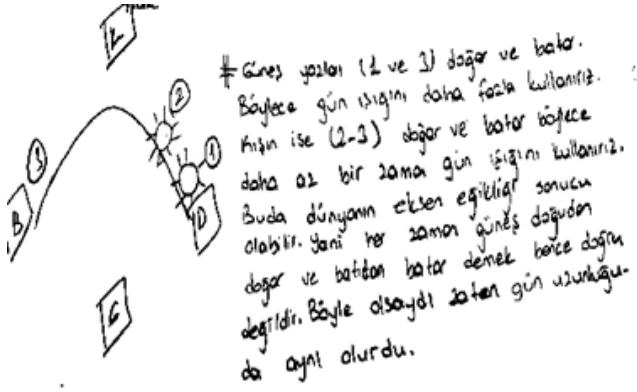 K
②
③
①
B
D
G
# Güneş yazları (1 ve 3) doğar ve batar.
Böylece gün ışığını daha fazla kullanırız.
Kışın ise (2-3) doğar ve batar böylece
daha az bir zama gün ışığını kullanırız.
Buda dünyanın eksen eğikliği sonucu
olabilir. Yani her zaman güneş doğudan
doğar ve batıdan batar demek bence doğru
değildir. Böyle olsaydı zaten gün uzunluğu-
da aynı olurdu.